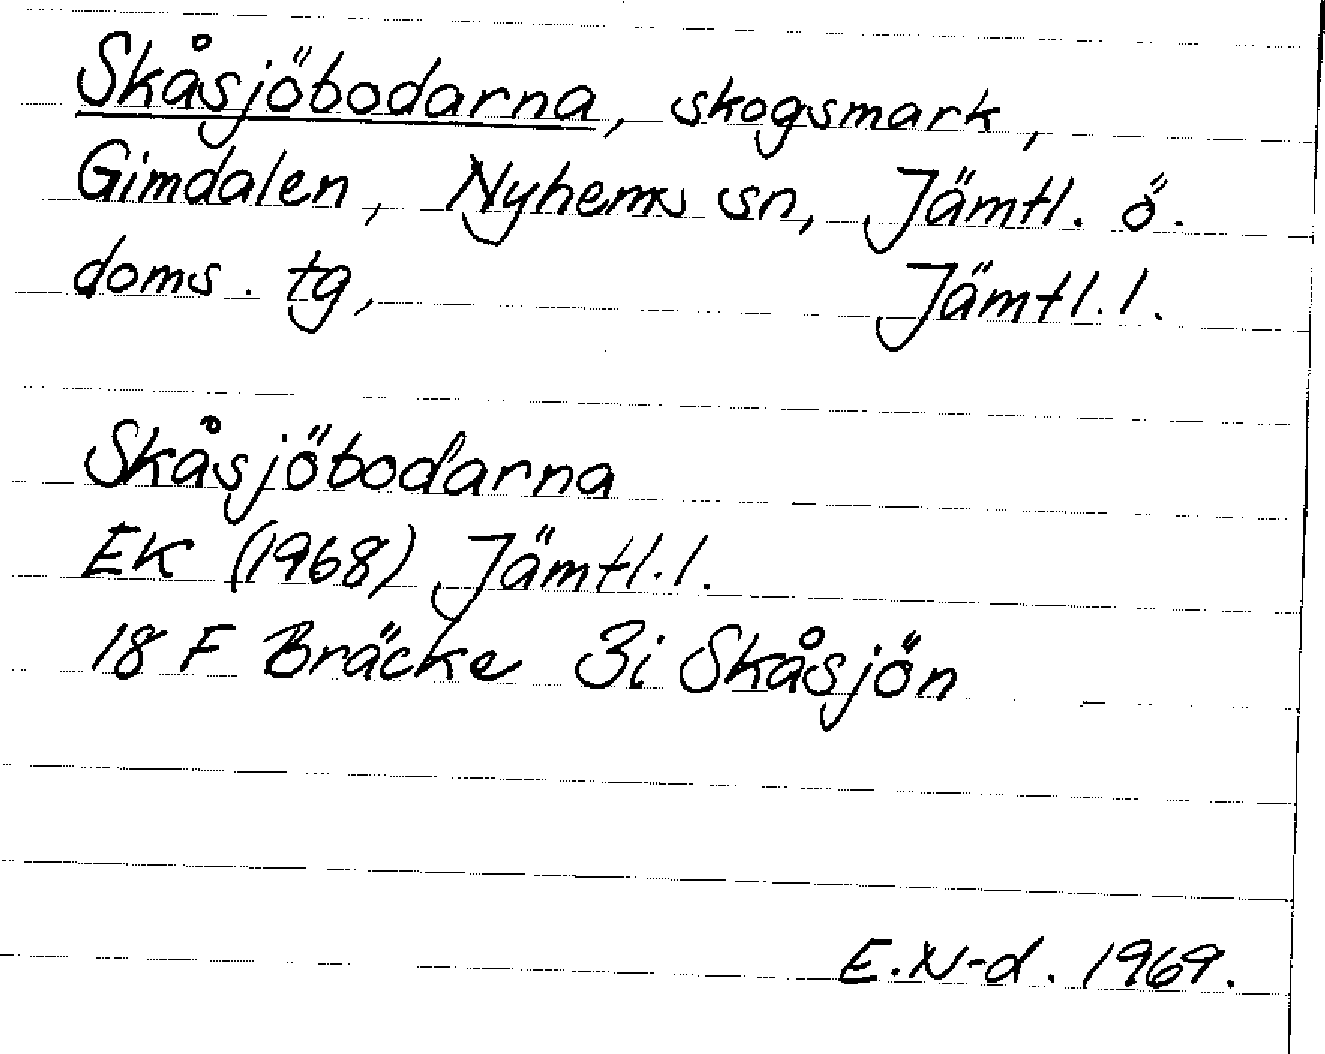 Skåsjöbodarna, skogsmark,
Gimdalen, Nyhems sn, Jämtl. ö.
doms. tg, Jämtl. l.
Skåsjöbodarna
EK (1968) Jämtl. l.
18 F Bräcke 3i Skåsjön
E.N-d. 1969.